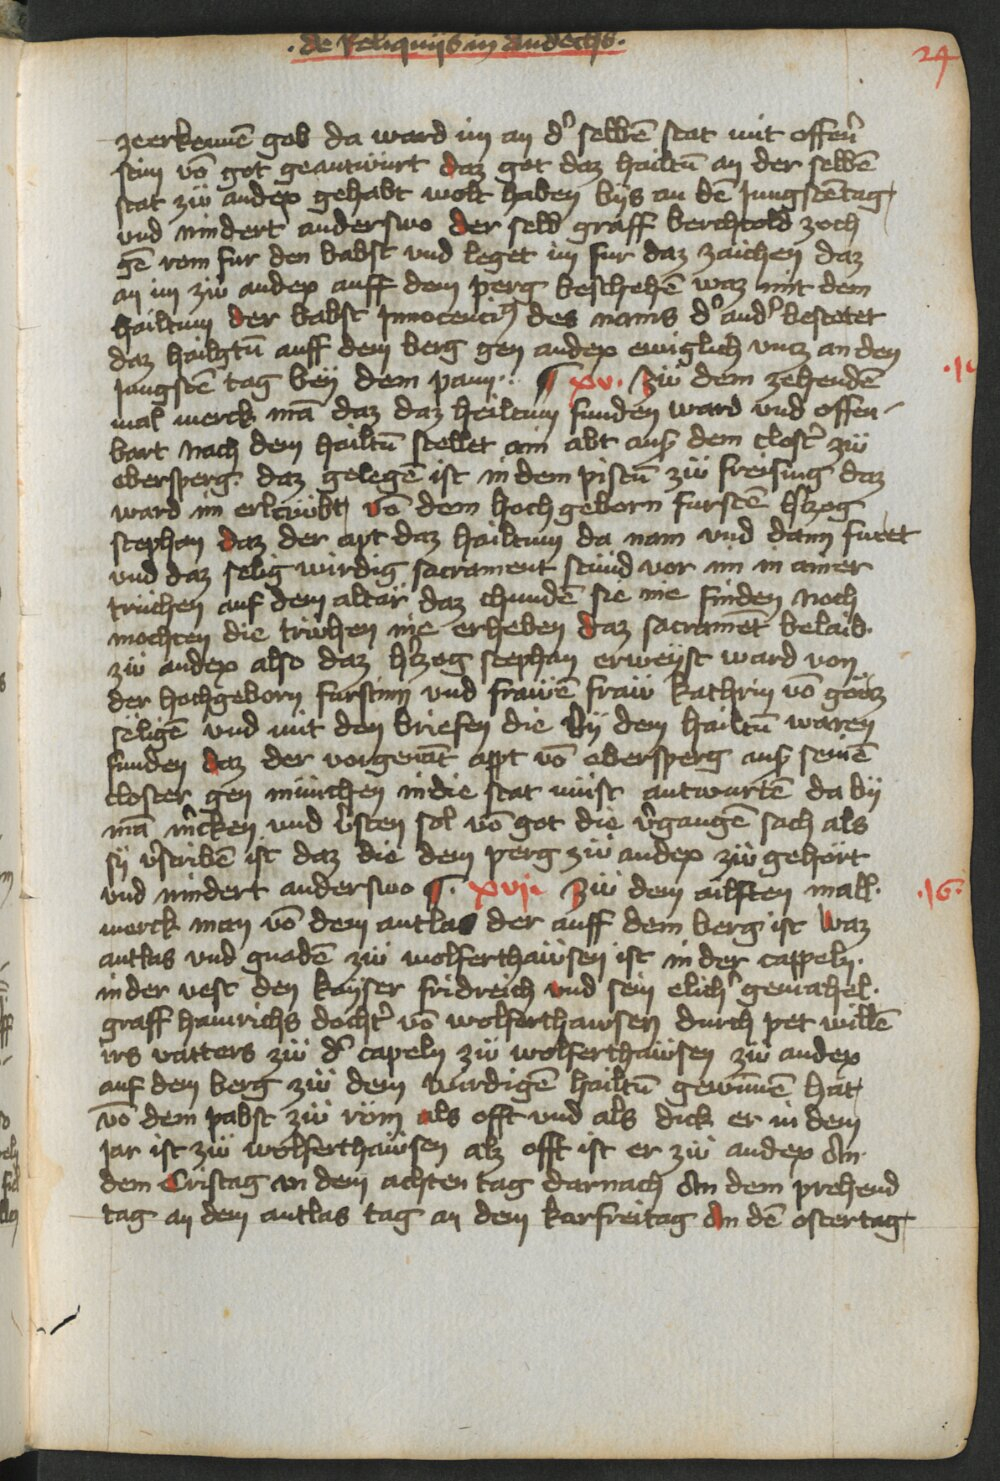 .de Reliquijs in Andechs.
24
zeerkennē gob da ward im an d' selbē stat mit offen'
stim vō got geantwurt daz got daz hailtū an der selbē
stat zü andex gehabt wolt haben bijs an dē Jungstētag
vnd nindert anderswo der selb graff berchtold zoch
gē rom fur den babst vnd leget im fur daz zaichen daz
an im zü andex auff dem perg beschehē waz mit dem
hailtum der babst Innocencius des nams d' and' bestetet
daz hailgtū auff dem berg gen andex ewiglich vncz an den
Jungstē tag beÿ dem pann. ¶ xv. Zü dem zehendē
mal merck mā daz daz heiltum funden ward vnd offen-
bart nach dem hailtū stellet ain abt auß dem clost' zü
ebersperg. daz gelegē ist in dem pistū zü freising daz
ward im erlaubt vō dem hochgeborn furstē h'zog
stephan daz der apt daz hailtum da nam vnd dann furet
vnd daz selig wirdig sacrament stund vor im in ainer
truchen auf dem altar daz chundē sie nie finden noch
mochten die truhen nie erheben daz sacramēt belaib.
zü andex also daz h'zog stephan erweÿst ward von
der hochgeborn furstinn vnd frawē fraw kathrin vō görcz
seligē vnd mit den briefen die bÿ dem hailtū waren
funden daz der vorgenāt appt vō ebersperg auß seinē
closter gen münchen in die stat müst antwurtē da bÿ
mā m'cken vnd v'sten sol vō got die v'gangē sach als
sÿ v'scribē ist daz die dem perg zü andex zü gehört
vnd nindert anderswo ¶. xvj. Zü dem ailften mall.
.16.
merck man vō dem antlas der auff dem berg ist waz
antlas vnd gnadē zü wolferthausen ist in der cappeln.
in der vest den kaÿser fridreich vnd sein elich' gemahel.
graff hainrichs docht' vō wolferthawsen durch pet willē
irs vatters zü d' capeln zü wolferthawsen zü andex
auf dem berg zü dem wirdigē hailtū gewunnē hat
vō dem pabst zü röm als offt vnd als dick er in dem
Jar ist zü wolferthawsen alz offt ist er zü andex An
dem Cristag an dem achten tag darnach An dem prehend
tag an dem antlas tag an dem karfreitag An dē ostertag